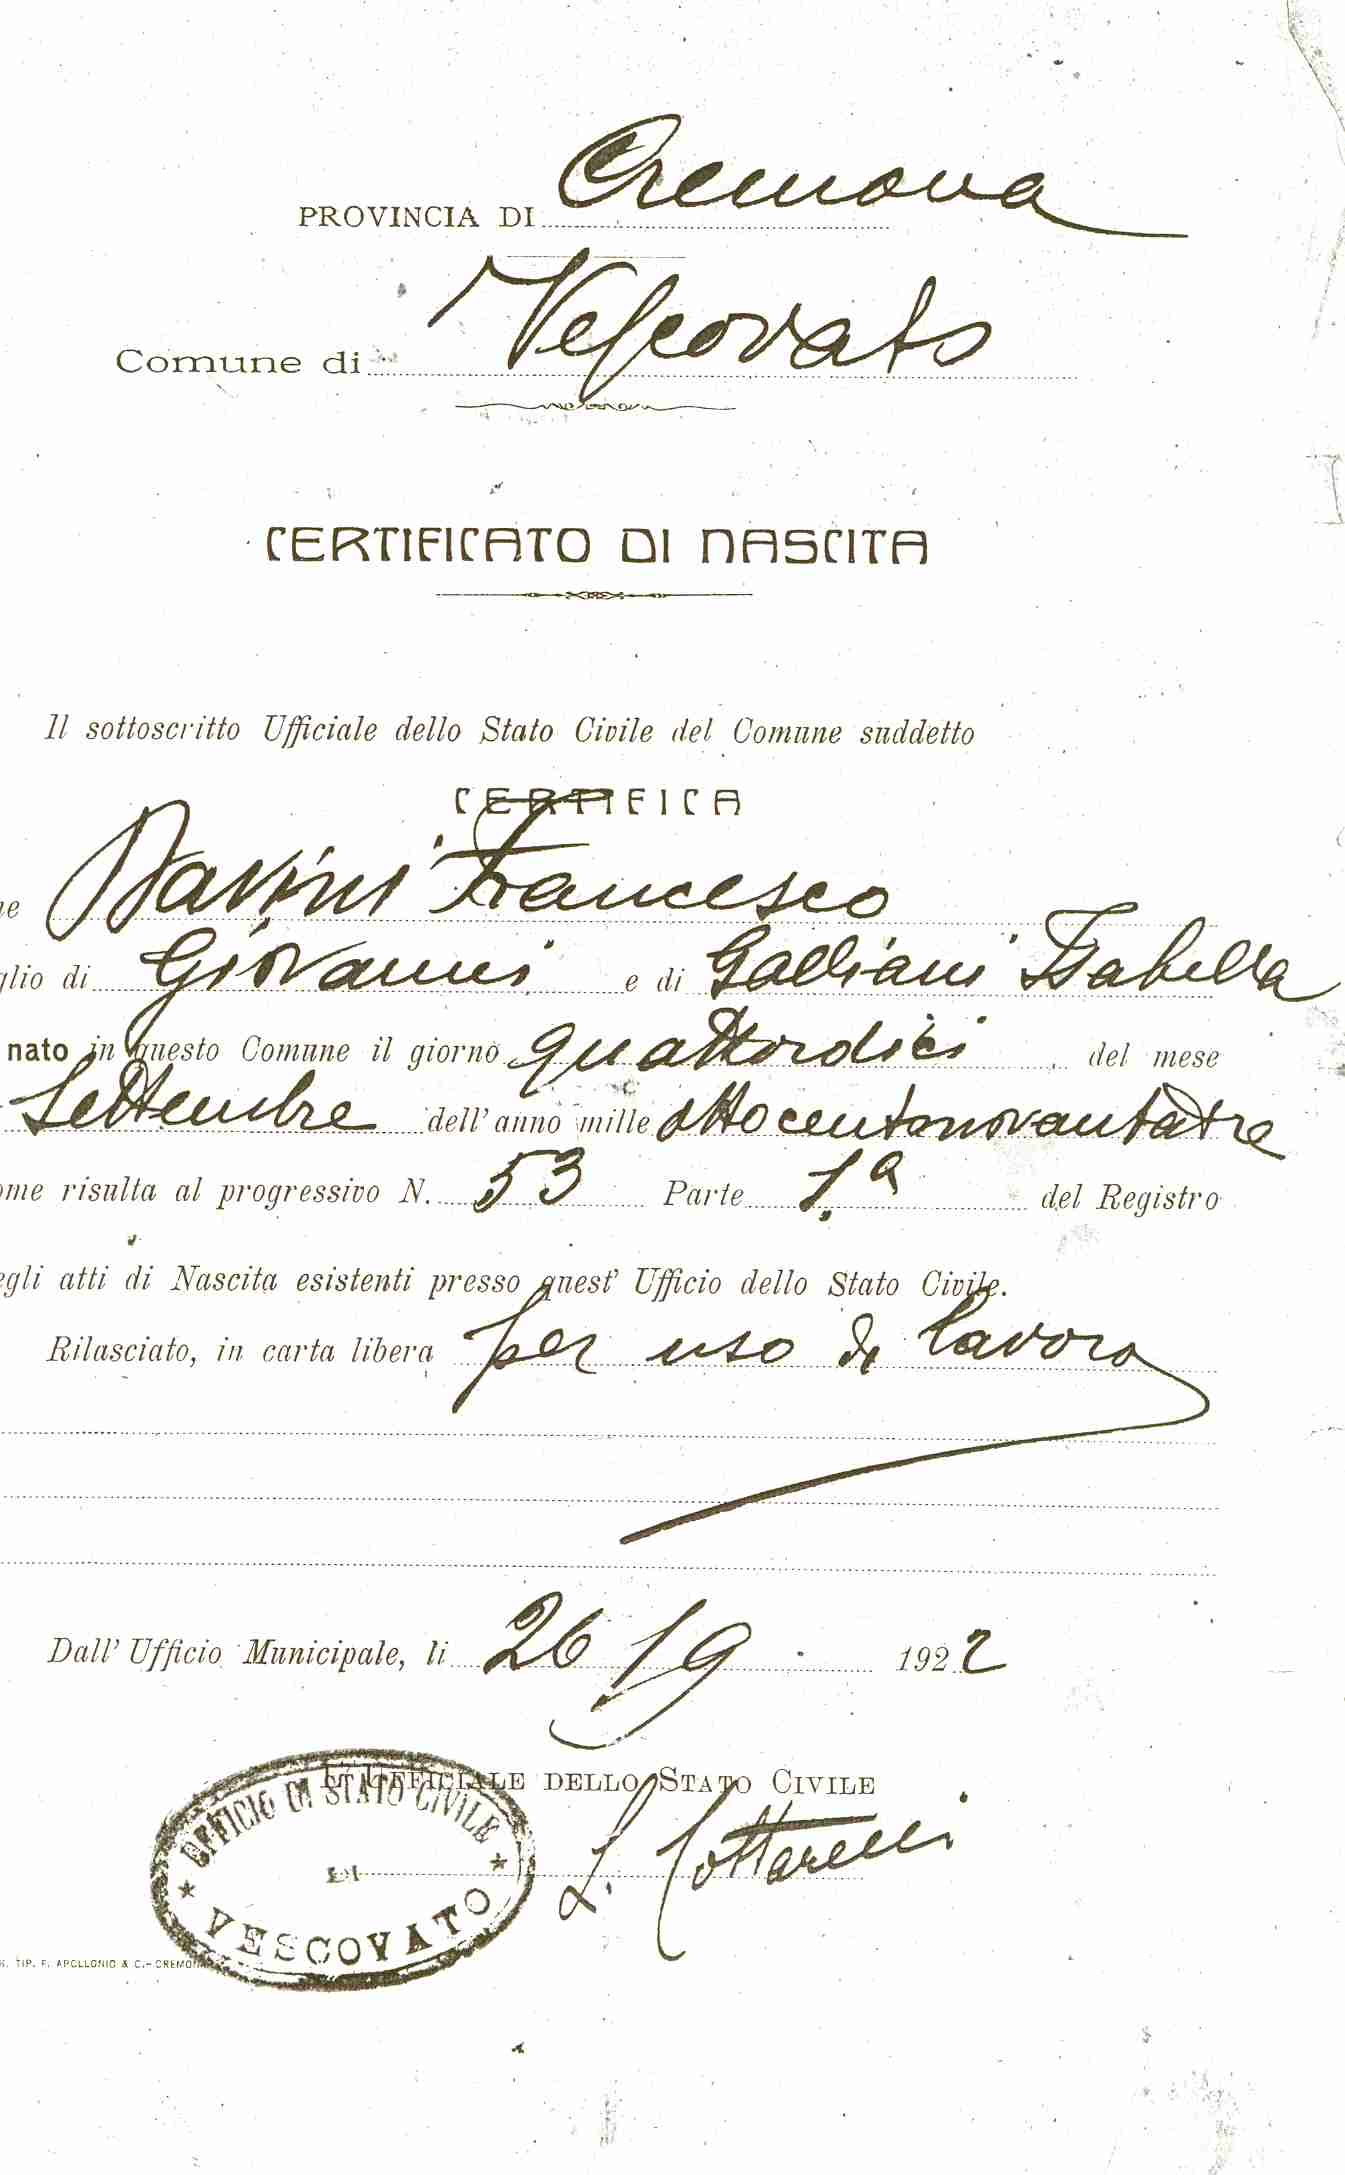 PROVINCIA DI Cremona
Comune di Vescovato
CERTIFICATO DI NASCITA
Il sottoscritto Ufficiale dello Stato Civile del Comune suddetto
CERTIFICA
Francesco
di Giovanni e di Galliani Isabella
nato in questo Comune il giorno quattordici del mese
Settembre dell' anno mille ottocentonovantatre
risulta al progressivo N. 53 Parte 1.a del Registro
atti di Nascita esistenti presso quest' Ufficio dello Stato Civile.
Rilasciato, in carta libera per uso di lavoro
Dall' Ufficio Municipale, li 26/9 1922
L' UFFICIALE DELLO STATO CIVILE
L. Cottarelli
UFFICIO DI STATO CIVILE
DI
★ VESCOVATO ★
TIP. F. APOLLONIO & C. - CREMONA